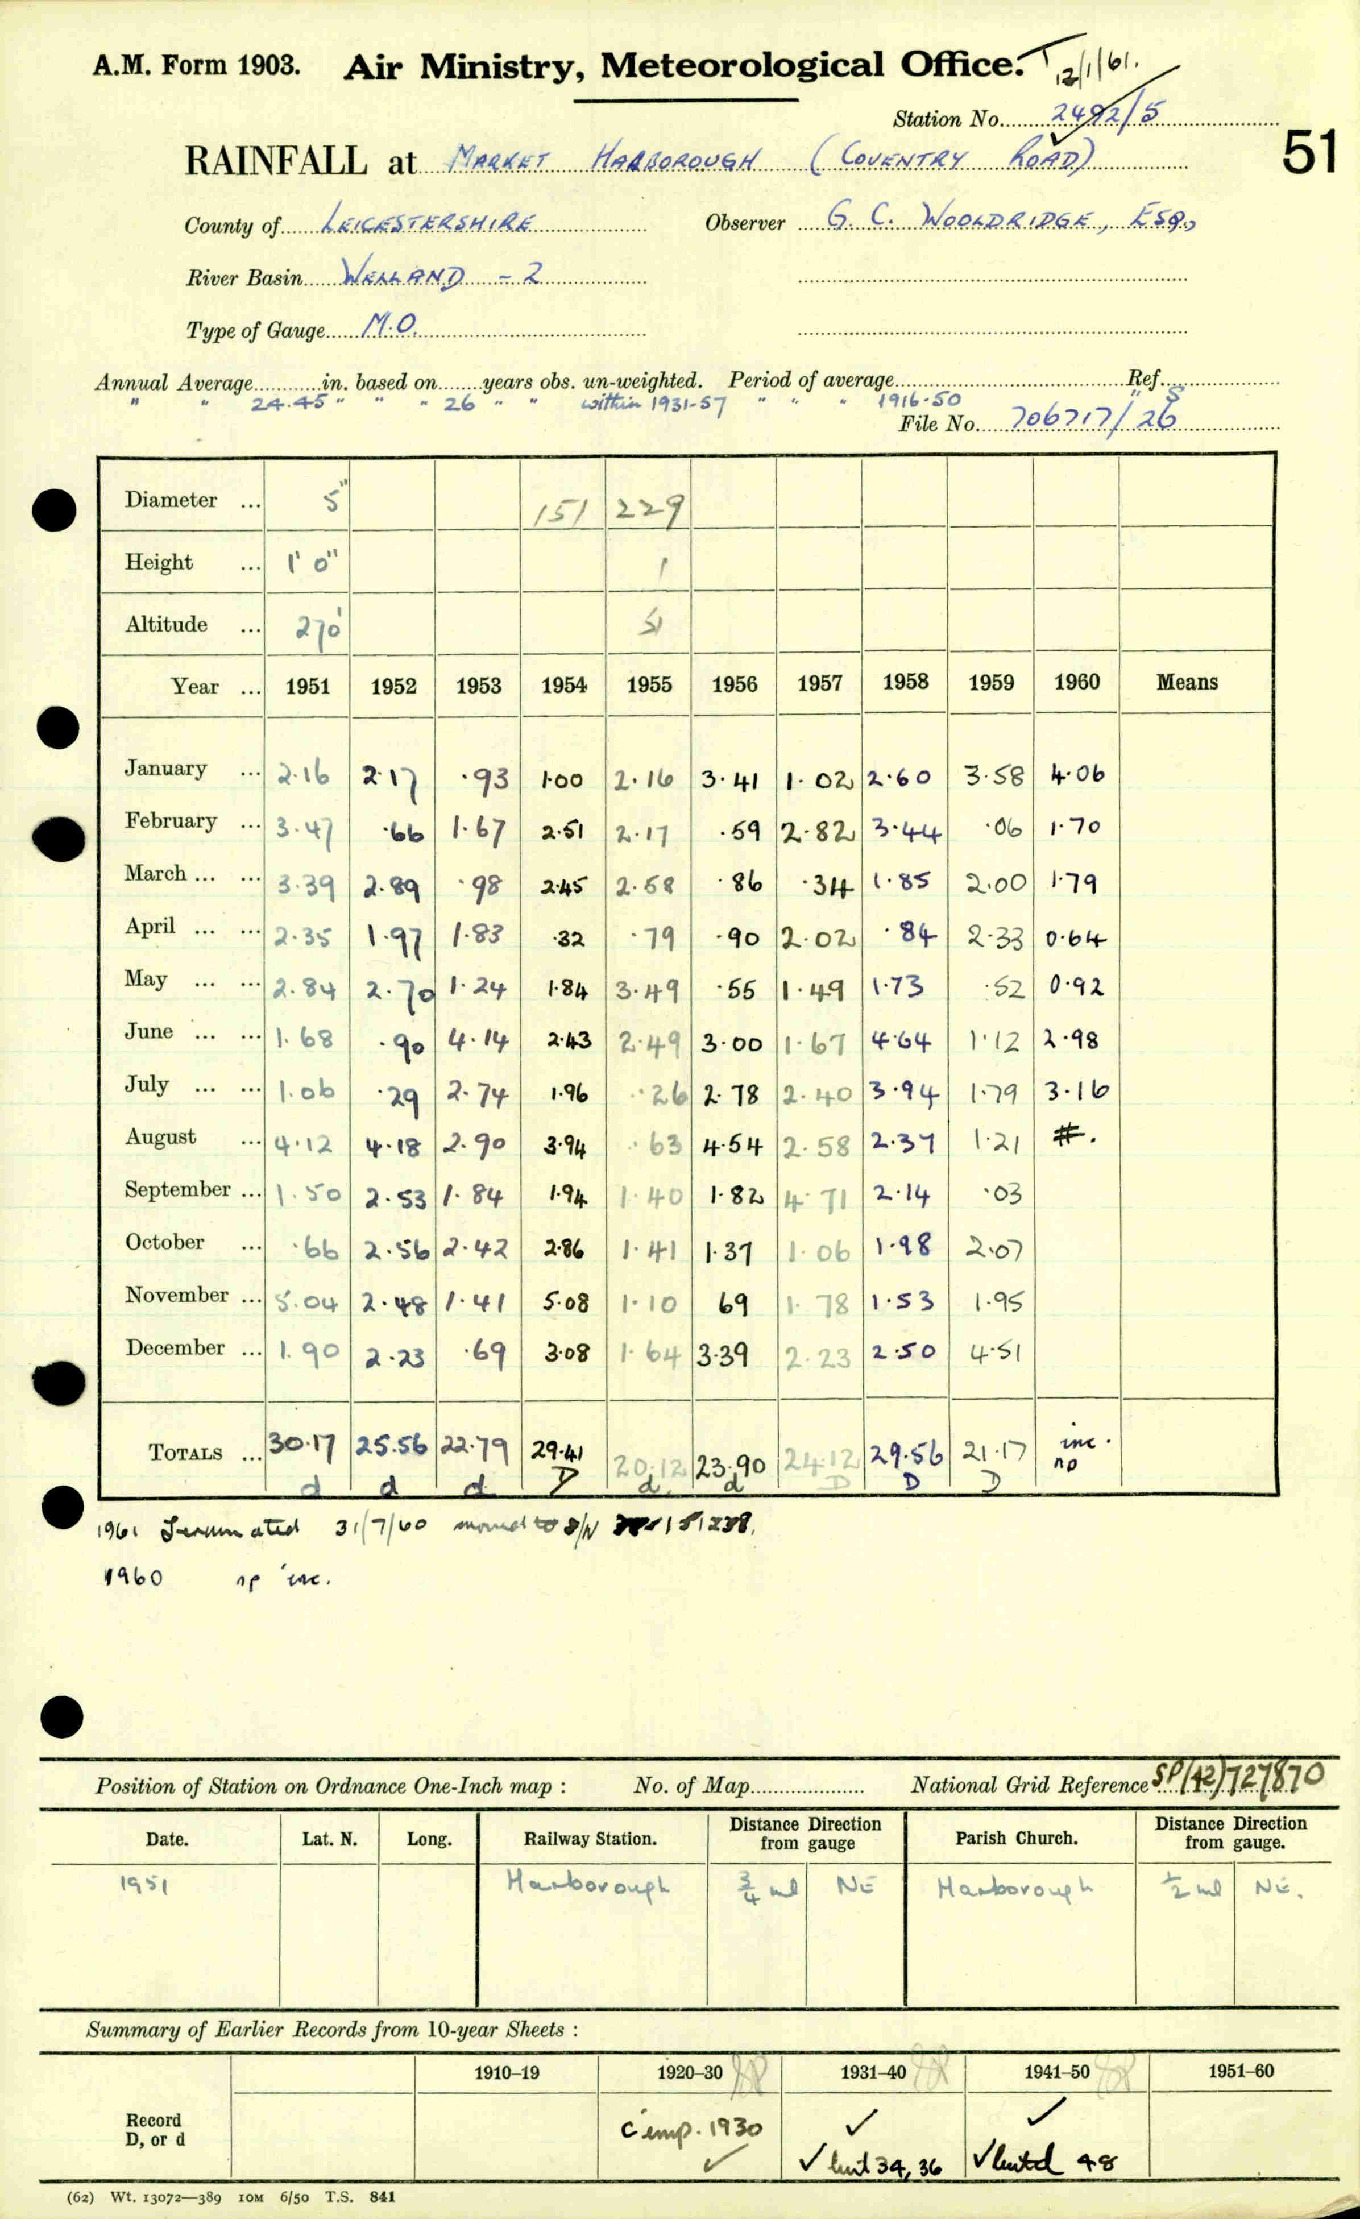 A.M. Form 1903. Air Ministry, Meteorological Office. T 12/1/61.
Station No. 2492/5
RAINFALL at MARKET HARBOROUGH (COVENTRY ROAD) 51
County of LEICESTERSHIRE Observer G. C. WOOLDRIDGE, ESQ.,
River Basin WELLAND - 2
Type of Gauge M.O.
Annual Average in. based on years obs. un-weighted. Period of average Ref.
" " 24.45 " " " 26 " " within 1931-57 " " " 1916-50 " S
File No. 706717/26
Diameter ... 5" 151 229
Height ... 1' 0" 1
Altitude ... 270'
Year ... 1951 1952 1953 1954 1955 1956 1957 1958 1959 1960 Means
January ... 2.16 2.17 .93 1.00 2.16 3.41 1.02 2.60 3.58 4.06
February ... 3.47 .66 1.67 2.51 2.17 .59 2.82 3.44 .06 1.70
March ... ... 3.39 2.89 .98 2.45 2.58 .86 .34 1.85 2.00 1.79
April ... ... 2.35 1.97 1.83 .32 .79 .90 2.02 .84 2.33 0.64
May ... ... 2.84 2.70 1.24 1.84 3.49 .55 1.49 1.73 .52 0.92
June ... ... 1.68 .90 4.14 2.43 2.49 3.00 1.67 4.64 1.12 2.98
July ... ... 1.06 .29 2.74 1.96 .26 2.78 2.40 3.94 1.79 3.16
August ... 4.12 4.18 2.90 3.94 .63 4.54 2.58 2.37 1.21 #.
September ... 1.50 2.53 1.84 1.94 1.40 1.82 4.71 2.14 .03
October ... .66 2.56 2.42 2.86 1.41 1.37 1.06 1.98 2.07
November ... 5.04 2.48 1.41 5.08 1.10 69 1.78 1.53 1.95
December ... 1.90 2.23 .69 3.08 1.64 3.39 2.23 2.50 4.51
TOTALS ... 30.17 25.56 22.79 29.41 20.12 23.90 24.12 29.56 21.17 inc. np
d d d D d. d D D D
1961 Terminated 31/7/60 moved to S/N 151238.
1960 np inc.
Position of Station on Ordnance One-Inch map : No. of Map National Grid Reference SP(42)727870
Date. Lat. N. Long. Railway Station. Distance Direction from gauge Parish Church. Distance Direction from gauge.
1951 Harborough 3/4 ml NE Harborough 1/2 ml NE.
Summary of Earlier Records from 10-year Sheets :
1910-19 1920-30 1931-40 1941-50 1951-60
Record
D, or d
C'emp. 1930 ✓ ✓
✓ ✓ but 34, 36 ✓ but d 48
(62) Wt. 13072—389 10M 6/50 T.S. 841